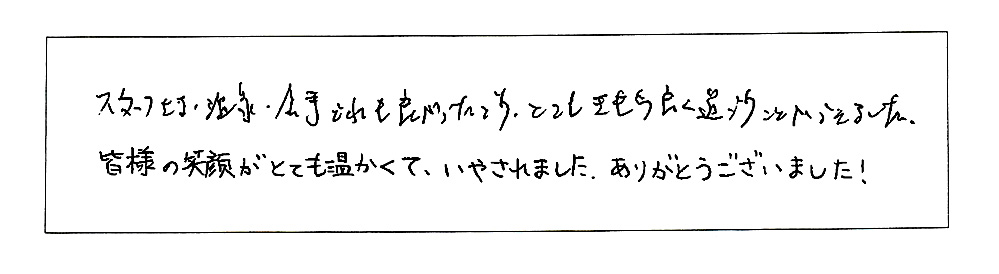 スタッフ・温泉・お事どれも良かったです。とても気もち良く過ごすことができました。
皆様の笑顔がとても温かくて、いやされました。ありがとうございました！